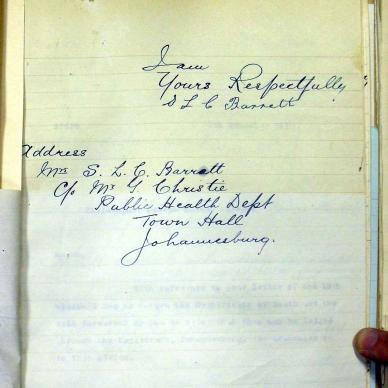 I am
Yours Respectfully
S L C Barrett
Address
Mrs S. L. C. Barrett
c/o Mr G. Christie
Public Health Dept
Town Hall
Johannesburg.